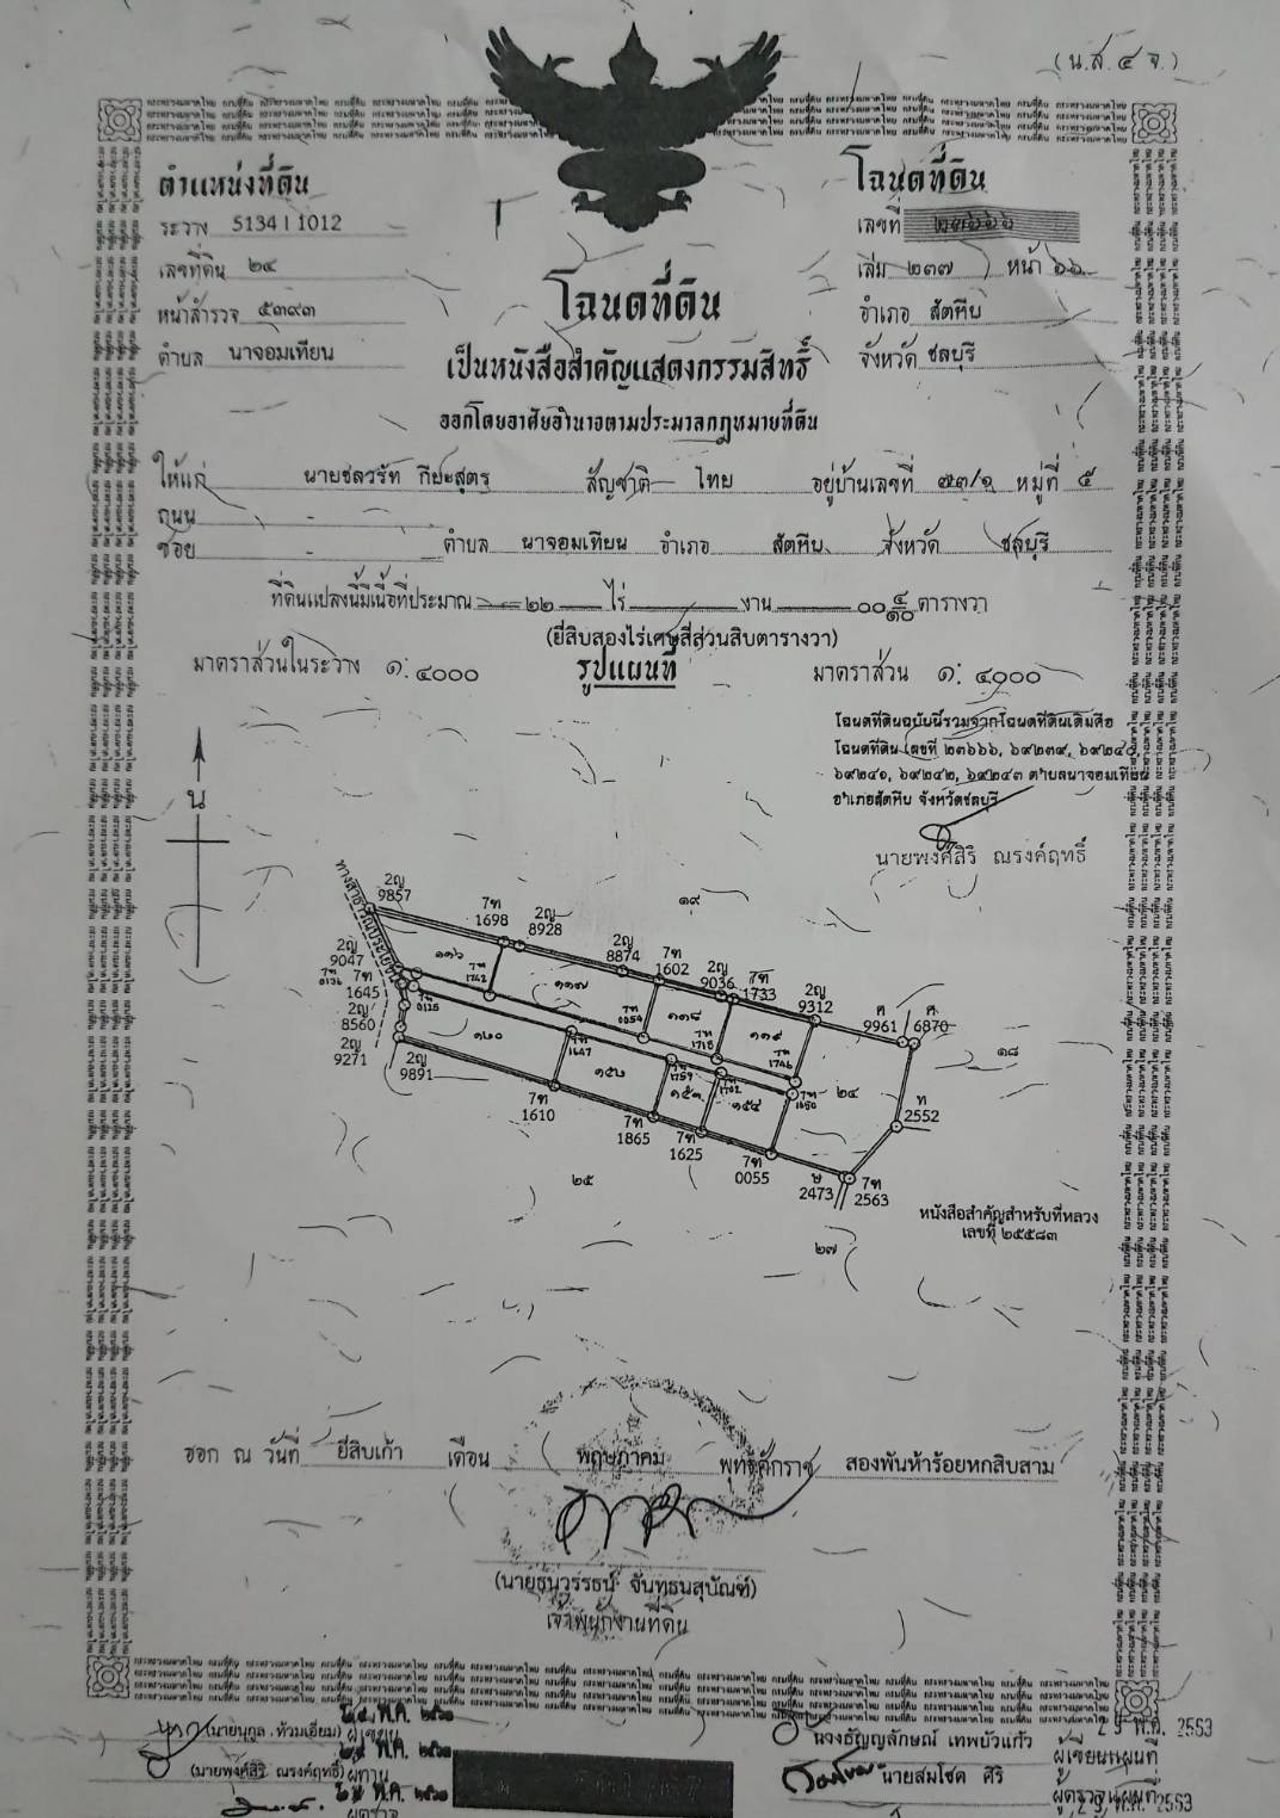 (น.ส.๔ จ.)
ตำแหน่งที่ดิน
ระวาง 5134 I 1012
เลขที่ดิน ๒๔
หน้าสำรวจ ๕๓๙๓
ตำบล นาจอมเทียน
โฉนดที่ดิน
เลขที่ ๒๓๖๖๖
เล่ม ๒๓๗ หน้า ๖๖
อำเภอ สัตหีบ
จังหวัด ชลบุรี
โฉนดที่ดิน
เป็นหนังสือสำคัญแสดงกรรมสิทธิ์
ออกโดยอาศัยอำนาจตามประมวลกฎหมายที่ดิน
ให้แก่ นายชลวรัท กีย์ะสูตร สัญชาติ ไทย อยู่บ้านเลขที่ ๗๓/๑ หมู่ที่ ๕
ถนน -
ซอย - ตำบล นาจอมเทียน อำเภอ สัตหีบ จังหวัด ชลบุรี
ที่ดินแปลงนี้มีเนื้อที่ประมาณ ๒๒ ไร่ งาน ๐๐ ๔/๑๐ ตารางวา
(ยี่สิบสองไร่เศษสี่ส่วนสิบตารางวา)
มาตราส่วนในระวาง ๑:๔๐๐๐ รูปแผนที่ มาตราส่วน ๑:๔๐๐๐
โฉนดที่ดินฉบับนี้รวมจากโฉนดที่ดินเดิมคือ
โฉนดที่ดิน เลขที่ ๒๓๖๖๖, ๖๙๒๓๙, ๖๙๒๔๐,
๖๙๒๔๑, ๖๙๒๔๒, ๖๙๒๔๓ ตำบลนาจอมเทียน
อำเภอสัตหีบ จังหวัดชลบุรี
นายพงศ์สิริ ณรงค์ฤทธิ์
น
ทางสาธารณประโยชน์
2ญ
9857
7ท
1698
2ญ
8928
๑๙
2ญ
8874
7ท
1602
2ญ
9036
7ท
1733
2ญ
9312
ศ
9961
ศ
6870
2ญ
9047
7ท
0136
7ท
1645
2ญ
8560
2ญ
9271
2ญ
9891
๑๑๖
7ท
1742
๑๑๗
7ท
0054
๑๑๘
7ท
1718
๑๑๙
7ท
1746
๑๘
7ท
0135
๑๒๐
7ท
1647
7ท
1759
7ท
1702
๑๕๓
๑๕๔
7ท
1650
๒๔
ท
2552
7ท
1610
7ท
1865
7ท
1625
7ท
0055
ษ
2473
7ท
2563
๒๕
๒๗
หนังสือสำคัญสำหรับที่หลวง
เลขที่ ๒๕๕๘๓
ออก ณ วันที่ ยี่สิบเก้า เดือน พฤษภาคม พุทธศักราช สองพันห้าร้อยหกสิบสาม
(นายธนวรรธน์ จันทธนสุบัณฑ์)
เจ้าพนักงานที่ดิน
(นายนุกูล ท้วมเอี่ยม) ผู้เขียน
(นายพงศ์สิริ ณรงค์ฤทธิ์) ผู้ทาน
ผู้ตรวจ
นางธัญญลักษณ์ เทพบัวแก้ว ผู้เขียนแผนที่
นายสมโชค ศิริ ผู้ตรวจแผนที่
2 9 พ.ค. 2553